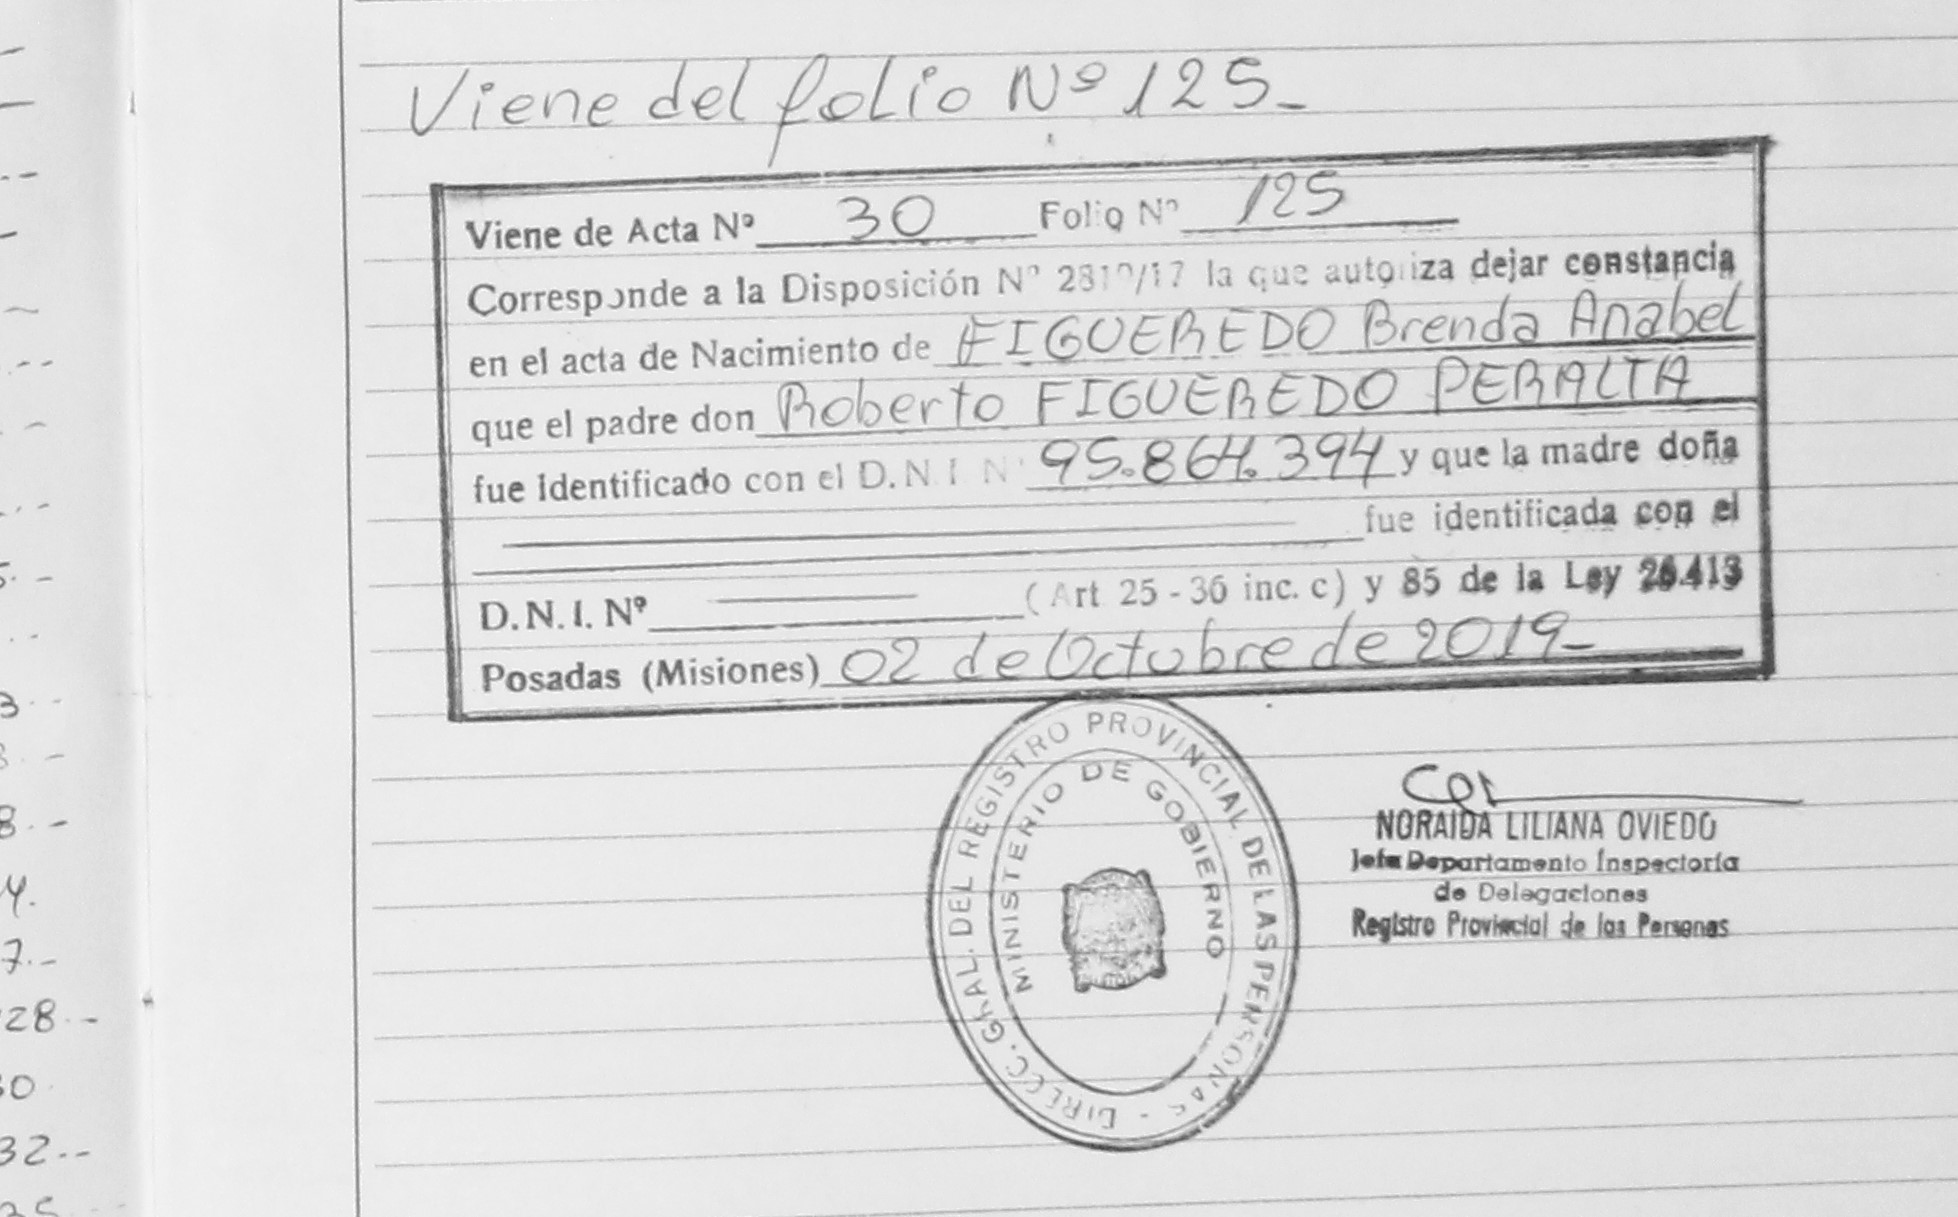 Viene del folio Nº 125_
Viene de Acta Nº 30 Folio Nº 125
Corresponde a la Disposición Nº /17 la que autoriza dejar constancia
en el acta de Nacimiento de FIGUEREDO Brenda Anabel
que el padre don Roberto FIGUEREDO PERALTA
fue identificado con el D.N.I Nº 95.864.394 y que la madre doña
fue identificada con el
D.N.I. Nº (Art 25 - 36 inc. c) y 85 de la Ley 26.413
Posadas (Misiones) 02 de Octubre de 2019_
DIRECC. GRAL. DEL REGISTRO PROVINCIAL DE LAS PERSONAS -
MINISTERIO DE GOBIERNO
NORAIDA LILIANA OVIEDO
Jefa Departamento Inspectoría
de Delegaciones
Registro Provincial de las Personas
28.-
30
32.--